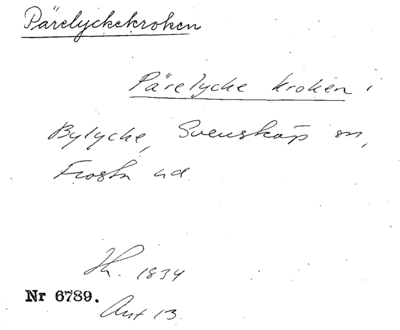 Pärelyckekroken
Pärelycke kroken i
Bylycke, Svensköp sn,
Frosta hd
Lh. 1834
Nr 6789.
Akt 13